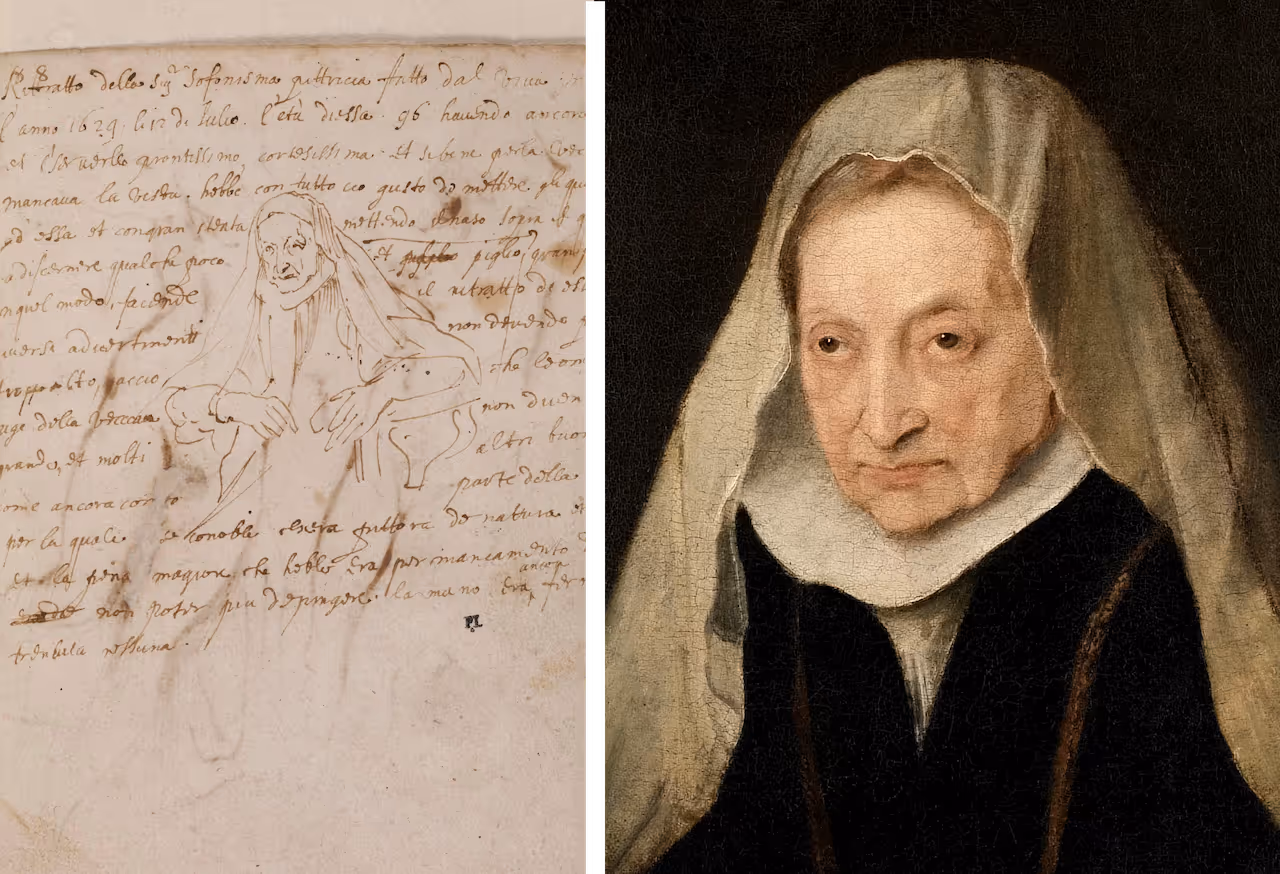 Rittratto della Sigra Sofonisma pittricia fatto dal vivo in
l'anno 1629 li 12 di Julio. l'età di essa 96 havendo ancora
et cervello prontissimo cortesissima et sebene per la vec
mancava la vista. hebbe con tutto cio gusto de mettere gli qu
ad essa et con gran stenta mettendo il naso sopra il q
discernere qualche poco et pigliò gran
in quel modo, facendo il ritratto de es
diversi advertimenti non devendo
troppo alto, accio che le om
rughe della vecciaia non diven
grande, et molti altri buon
come ancora conto parte della
per la quale se conobbe ch'era pittora de natura
et la pena magiore che hebbe era per mancamento
non poter piu depingere. la mano era ancora fer
trembula nessuna.
P.L